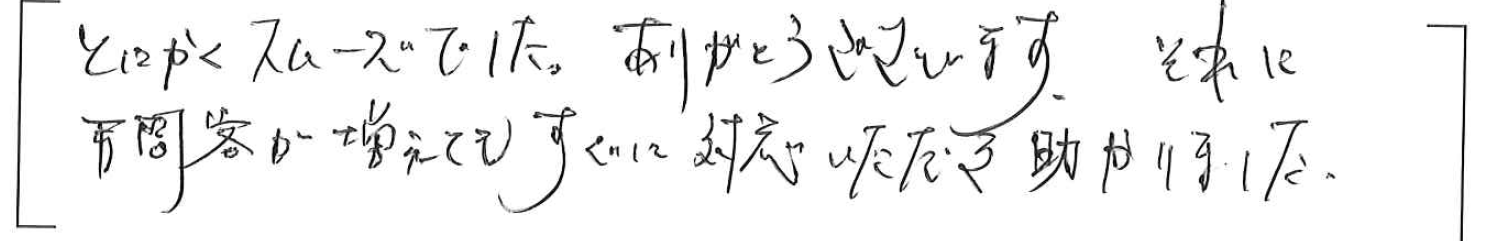 とにかくスムーズでした。ありがとうございます。それに
訪問客が増えてもすぐに対応いただき助かりました。